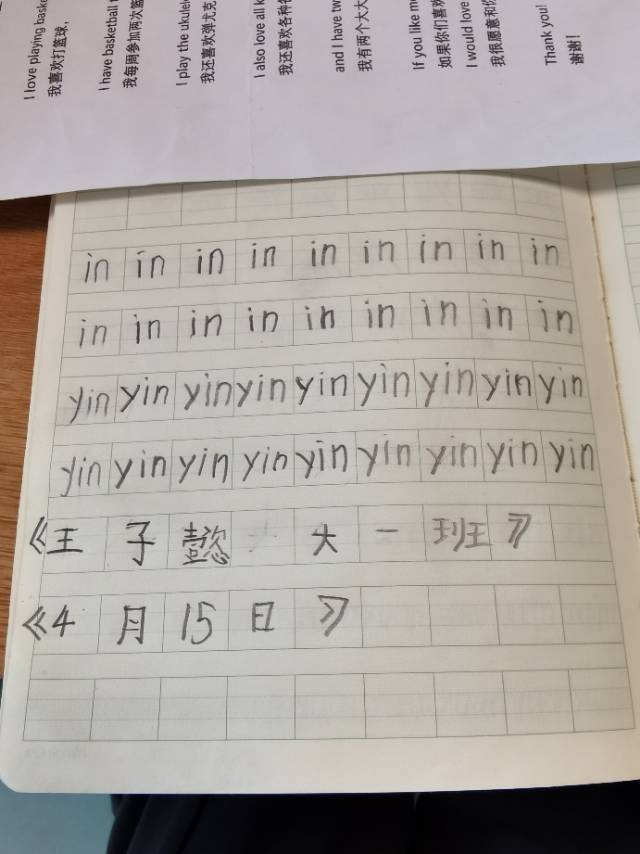 I love playing baske
我喜欢打篮球，
I have basketball
我每周参加两次篮
I play the ukulel
我还喜欢弹尤克
I also love all k
我还喜欢各种各
and I have tw
我有两个大大
If you like m
如果你们喜欢
I would love
我很愿意和你
Thank you!
谢谢！
in in in in in in in in in
in in in in in in in in in
yin yin yin yin yin yin yin yin yin
yin yin yin yin yin yin yin yin yin
《王子懿 大一班》
《4月15日》